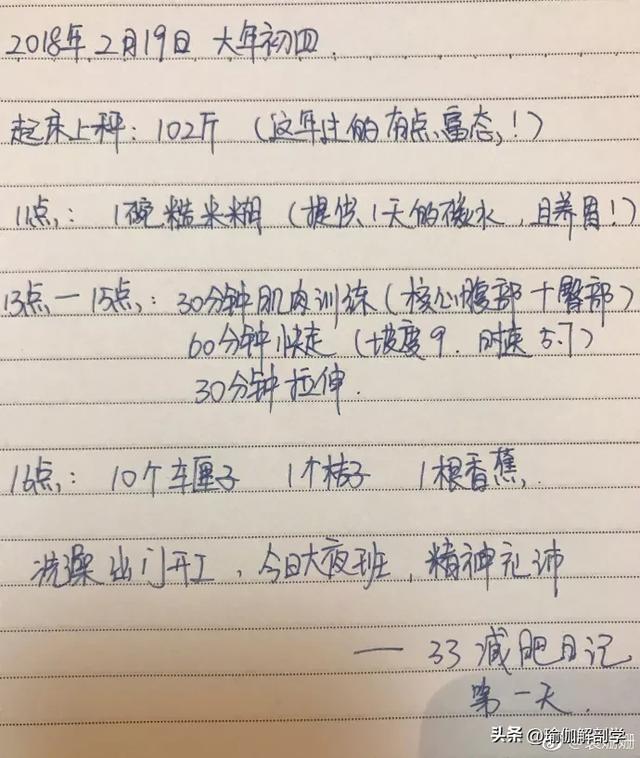 2018年2月19日 大年初四.
起床上秤: 102斤 (这年过的有点富态!)
11点: 1碗糙米糊 (提供1天的碳水, 且养胃!)
13点一15点: 30分钟肌肉训练 (核心腹部+臀部)
60分钟快走 (坡度9. 时速5.7)
30分钟拉伸.
16点: 10个车厘子 1个桔子 1根香蕉.
洗澡出门开工, 今日大夜班, 精神充沛
— 33减肥日记
第一天.
头条@瑜伽解剖学